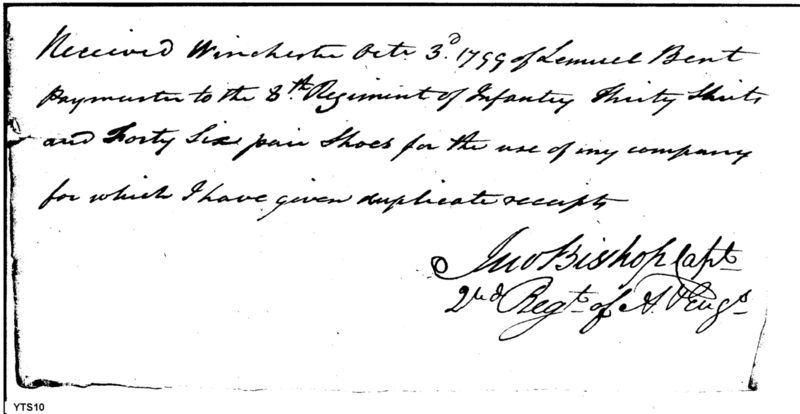 Received Winchester Octr. 3d. 1799 of Lemuel Bent
Paymaster to the 8th Regiment of Infantry Thirty Shirts
and Forty Six pair Shoes for the use of my company
for which I have given duplicate receipts
Jno Bishop Capt
2nd Regt. of A. & Engs
YTS10